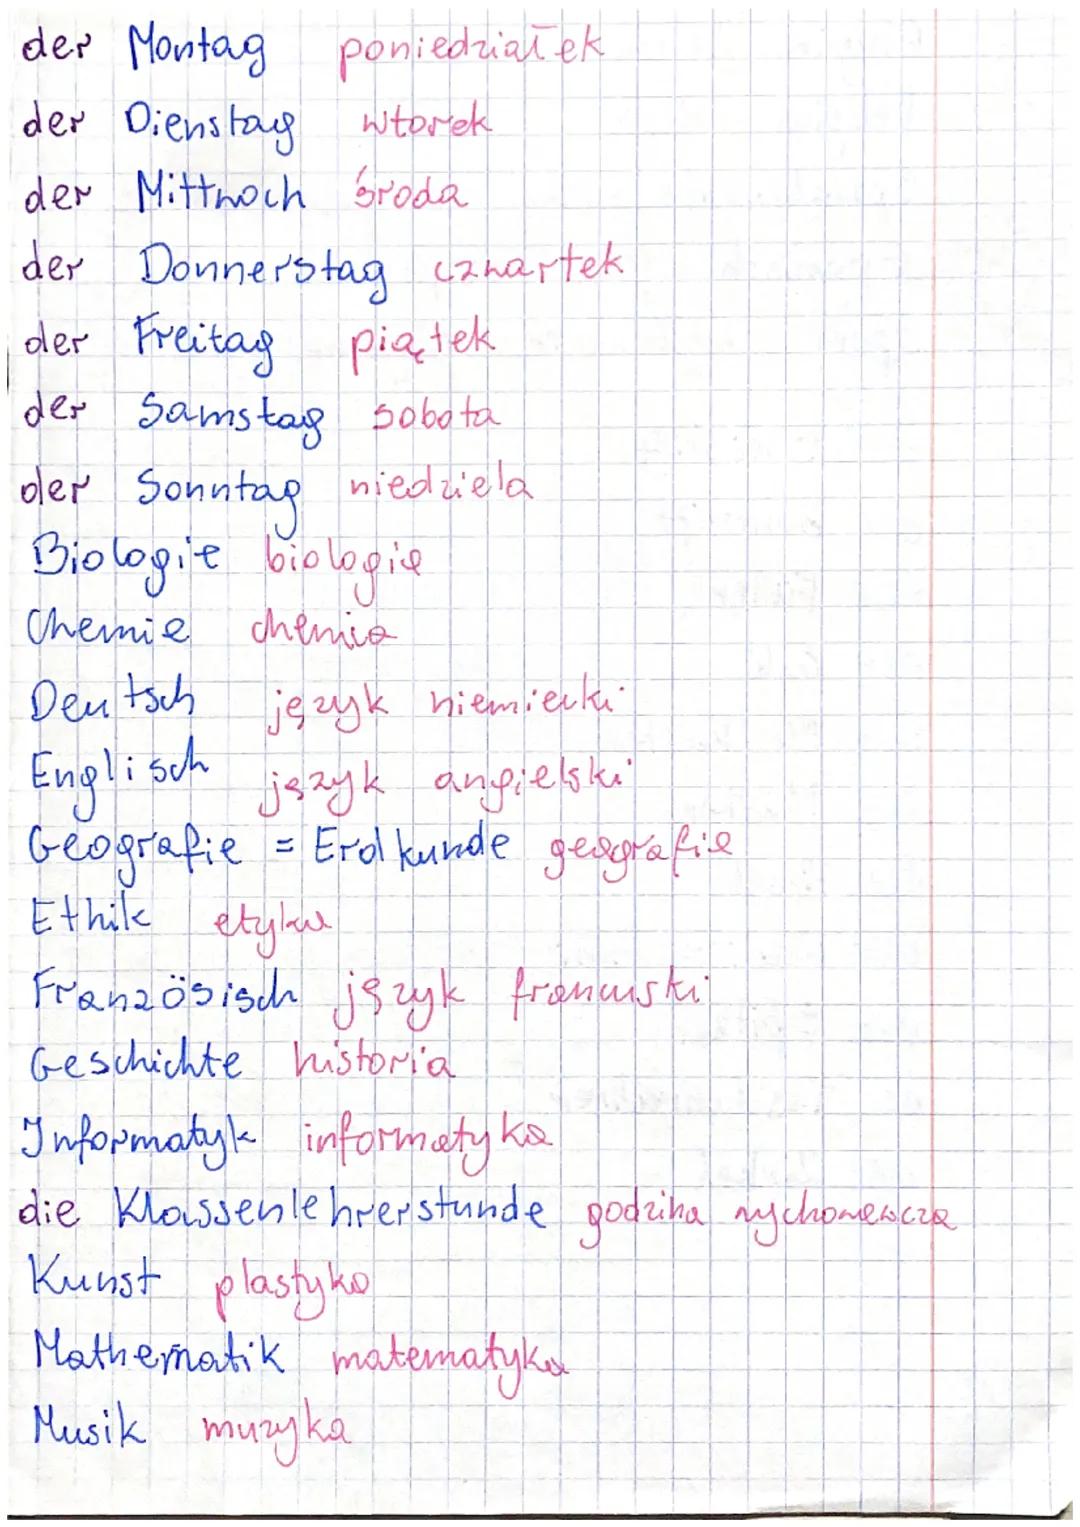 der Montag poniedziałek
der Dienstag wtorek
der Mittwoch środa
der Donnerstag czwartek
der Freitag piątek
der Samstag sobota
der Sonntag niedziela
Biologie biologia
Chemie chemia
Deutsch język niemiecki
Englisch język angielski
Geografie = Erdkunde geografia
Ethik etyka
Französisch język francuski
Geschichte historia
Informatyk informatyka
die Klassenlehrerstunde godzina wychowawcza
Kunst plastyka
Mathematik matematyka
Musik muzyka